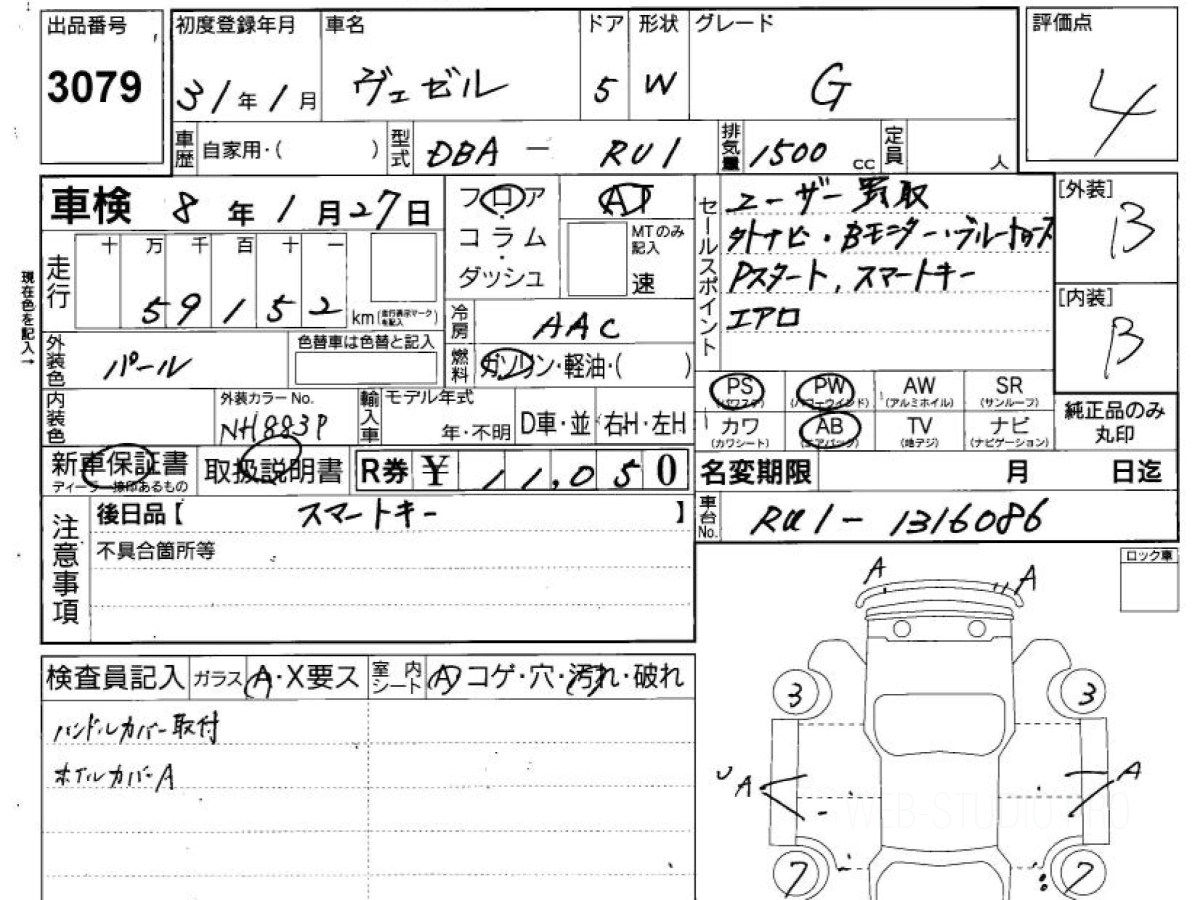 出品番号
3079
初度登録年月
31年1月
車名
ヴェゼル
ドア
5
形状
W
グレード
G
評価点
4
車歴
自家用・( )
型式
DBA - RU1
排気量
1500 cc
定員
人
車検 8年1月27日
フロア
・
コラム
・
ダッシュ
AT
MTのみ
記入
速
セールスポイント
ユーザー買取
外ナビ・Bモニター・ブルートゥース
Pスタート,スマートキー
エアロ
[外装]
B
[内装]
B
走行
十 万 千 百 十 一
5 9 1 5 2
km (走行表示マークを記入)
現在色を記入→
冷房
AAC
燃料
ガソリン・軽油・( )
外装色
パール
色替車は色替と記入
内装色
外装カラーNo.
NH883P
輸入車
モデル年式
年・不明
D車・並
右H・左H
PS
(パワステ)
PW
(パワーウインド)
AW
(アルミホイル)
SR
(サンルーフ)
カワ
(カワシート)
AB
(エアバック)
TV
(地デジ)
ナビ
(ナビゲーション)
純正品のみ
丸印
新車保証書
ディーラー捺印あるもの
取扱説明書
R券 ¥ 11,050
名変期限 月 日迄
車台No.
RU1-1316086
注意事項
後日品【 スマートキー 】
不具合箇所等
ロック車
検査員記入
ガラス A・X要ス
室内シート
A コゲ・穴・汚れ・破れ
ハンドルカバー取付
ホイルカバーA
A
A
3
3
A
A
7
7
WEB-STUDIO.PRO